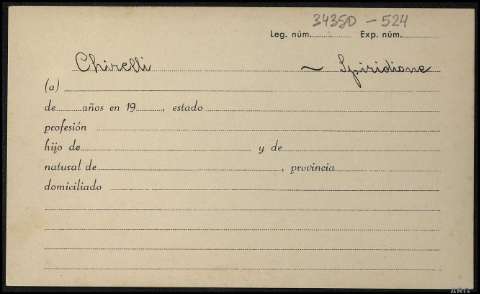 34350 - 524
Leg. núm. Exp. núm.
Chirelli ~ Spiridione
(a)
de años en 19 , estado
profesión
hijo de y de
natural de , provincia
domiciliado